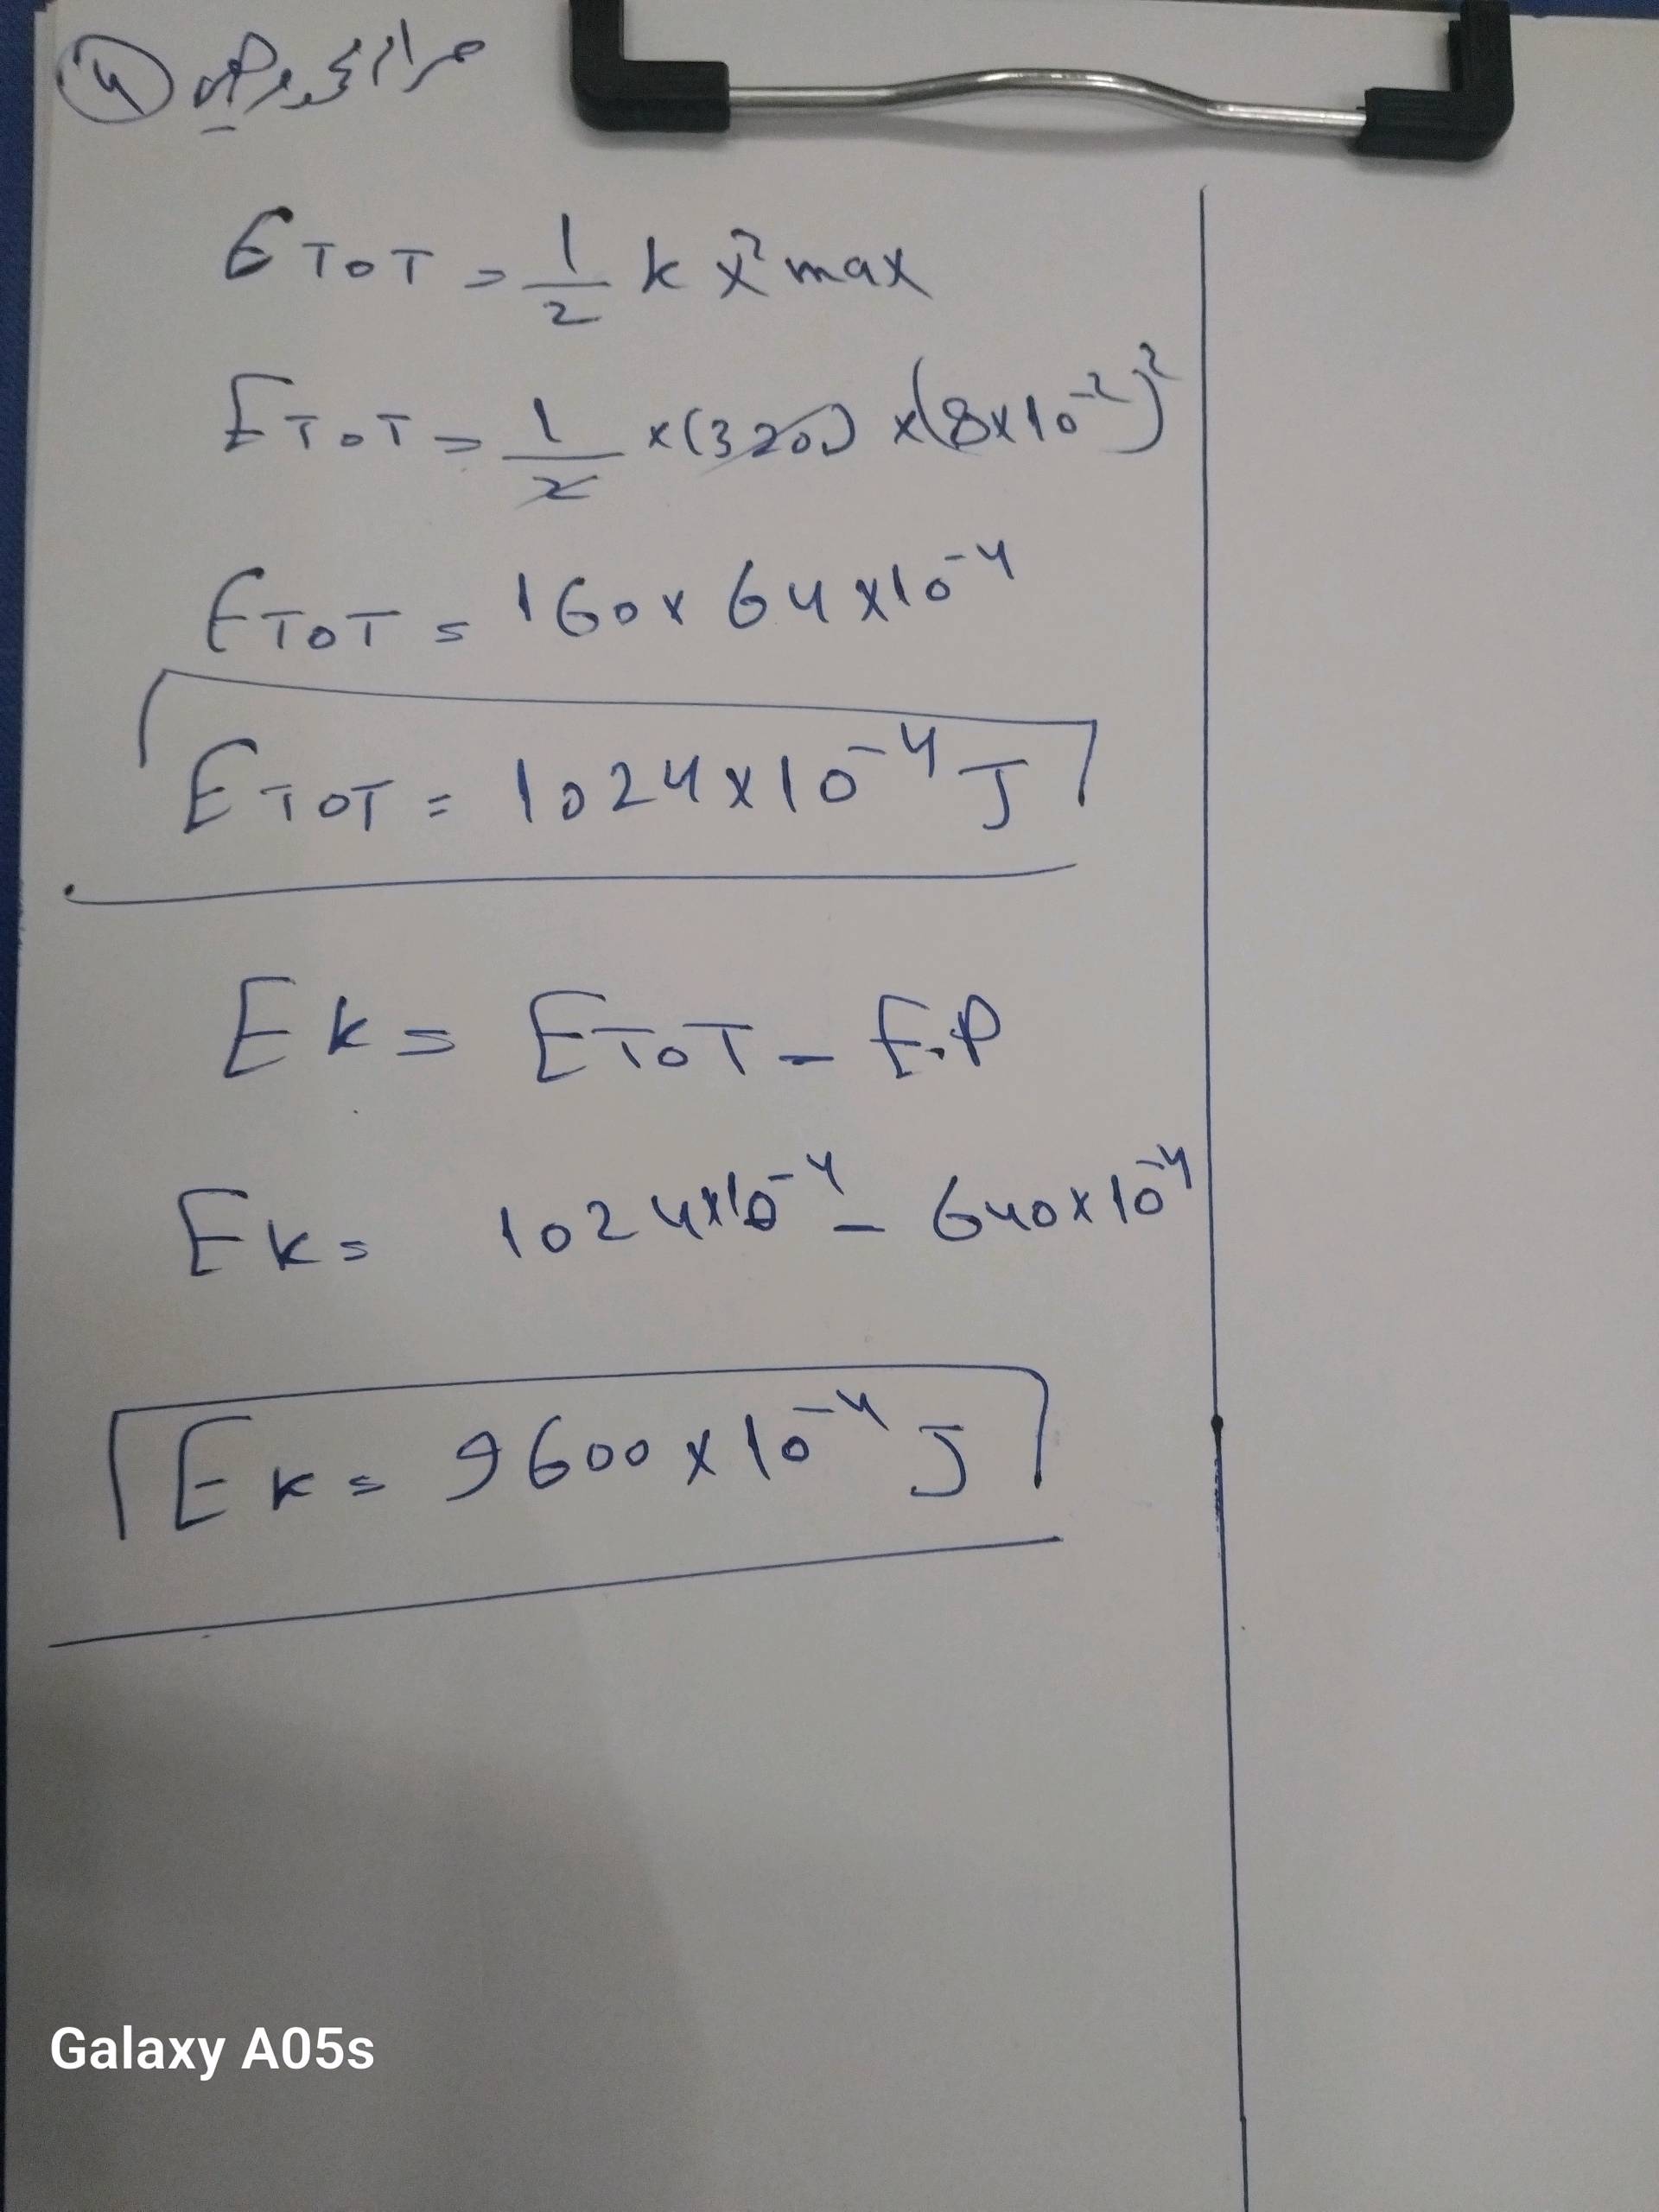 4
E TOT = 1/2 k x² max
E TOT = 1/2 x(320) x(8x10⁻²)²
E TOT = 160x 64x10⁻⁴
E TOT = 1024x10⁻⁴ J
Ek = E TOT - E.P
Ek = 1024x10⁻⁴ - 640x10⁻⁴
Ek = 9600x10⁻⁴ J
Galaxy A05s